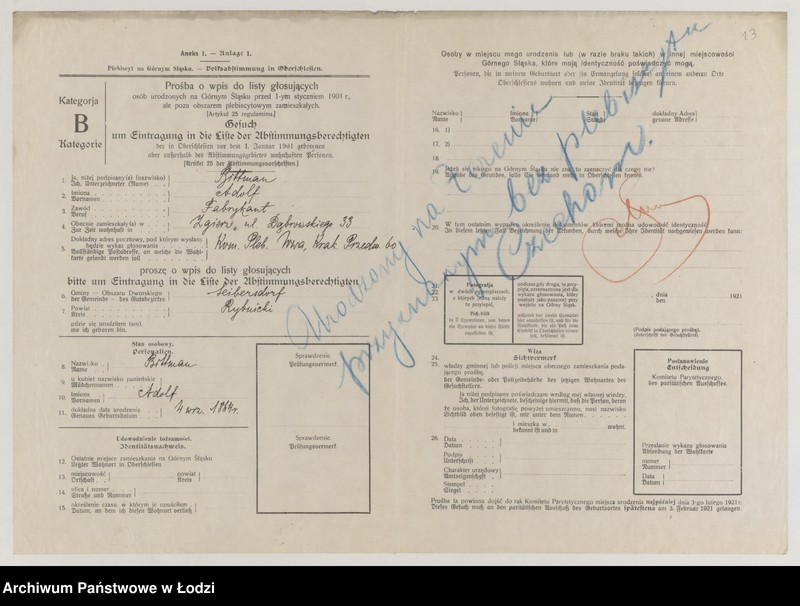 Aneks 1. — Anlage 1.
Plebiscyt na Górnym Śląsku. — Volksabstimmung in Oberschlesien.
Kategorja
B
Kategorie
Prośba o wpis do listy głosujących
osób urodzonych na Górnym Śląsku przed 1-ym styczniem 1901 r.,
ale poza obszarem plebiscytowym zamieszkałych.
[Artykuł 25 regulaminu.]
Gesuch
um Eintragung in die Liste der Abstimmungsberechtigten
der in Oberschlesien vor dem 1. Januar 1901 geborenen
aber außerhalb des Abstimmungsgebietes wohnhaften Personen.
[Artikel 25 der Abstimmungsvorschriften]
1. Ja, niżej podpisany(a) (nazwisko)
Ich, Unterzeichneter (Name)
Bittman
2. Imiona
Vornamen
Adolf
3. Zawód
Beruf
Fabrykant
4. Obecnie zamieszkały(a) w
Zur Zeit wohnhaft in
Zgierz, ul. Dąbrowskiego 33
5. Dokładny adres pocztowy, pod którym wysłany
będzie wykaz głosowania
Vollständige Postadresse, an welche die Wahl-
karte gesandt werden soll
Kom. Pleb. Wwa, Krak. Przedm. 60
proszę o wpis do listy głosujących
bitte um Eintragung in die Liste der Abstimmungsberechtigten
6. Gminy - Obszaru Dworskiego
der Gemeinde - des Gutsbezirkes
Seibersdorf
7. Powiat
Kreis
Rybnicki
gdzie się urodziłem (am).
wo ich geboren bin.
Stan osobowy.
Personalien.
8. Nazwisko
Name
Bittman
9. u kobiet nazwisko panieńskie
Mädchennamen
10. Imiona
Vornamen
Adolf
11. dokładna data urodzenia
Genaues Geburtsdatum
4 wrz. 1864 r.
Udowodnienie tożsamości.
Identitätsnachweis.
12. Ostatnie miejsce zamieszkania na Górnym Śląsku
Letzter Wohnort in Oberschlesien
13. miejscowość
Ortschaft
powiat
Kreis
14. ulica i numer
Straße und Nummer
15. określenie czasu w którym je opuściłem
Datum, an dem ich diesen Wohnort verließ
Sprawdzenie
Prüfungsvermerk
Sprawdzenie.
Prüfungsvermerk
13
Osoby w miejscu mego urodzenia lub (w razie braku takich) w innej miejscowości
Górnego Śląska, które moją identyczność poświadczyć mogą.
Personen, die in meinem Geburtsort oder (in Ermangelung solcher) an einem anderen Orte
Oberschlesiens wohnen und meine Identität bezeugen können.
Nazwisko
Name
Imiona
Vorname
Stan
Stand
dokładny Adres
genaue Adresse
16. 1)
17. 2)
18.
19. Jeżeli się nikogo na Górnym Śląsku nie zna, to zaznaczyć dla czego nie?
20.
21. W tym ostatnim wypadku określenie dokumentów, któremi można udowodnić identyczność
In diesem letzten Fall Bezeichnung der Urkunden, durch welche Ihre Identität nachgewiesen werden kann:
Urodzony na terenie
przyznanym bez plebiscytu
Czechom.
22.
23.
Fotografja
w dwóch egzemplarzach,
z których jedną należy
tu przylepić,
Lichtbild
dnia
den
1921
(Podpis podającego prośbę).
(Unterschrift des Gesuchstellers).
24.
Wiza
Sichtvermerk
25. władzy gminnej lub policji miejsca obecnego zamieszkania poda-
jącego prośbę.
der Gemeinde- oder Polizeibehörde des jetzigen Wohnortes des
Gesuchstellers.
Ja niżej podpisany poświadczam według mej własnej wiedzy,
Ich, der Unterzeichnete, bescheinige hiermit, daß die Person, deren
że osoba, której fotografję powyżej umieszczono, nosi nazwisko
Lichtbild oben befestigt ist, mir unter dem Namen
i mieszka w
bekannt ist und in
wohnt.
26. Data
Datum
Podpis
Unterschrift
Charakter urzędowy
Amtseigenschaft
Stempel
Siegel
Postanowienie
Entscheidung
Komitetu Parytetycznego.
des paritätischen Ausschusses.
Przesłanie wykazu głosowania
Absendung der Wahlkarte
numer
Nummer
Data
Datum
Prośba ta powinna dojść do rąk Komitetu Parytetycznego miejsca urodzenia najpóźniej dnia 3-go lutego 1921 r.
Dieses Gesuch muß an den paritätischen Ausschuß des Geburtsortes spätestens am 3. Februar 1921 gelangen.
Archiwum Państwowe w Łodzi